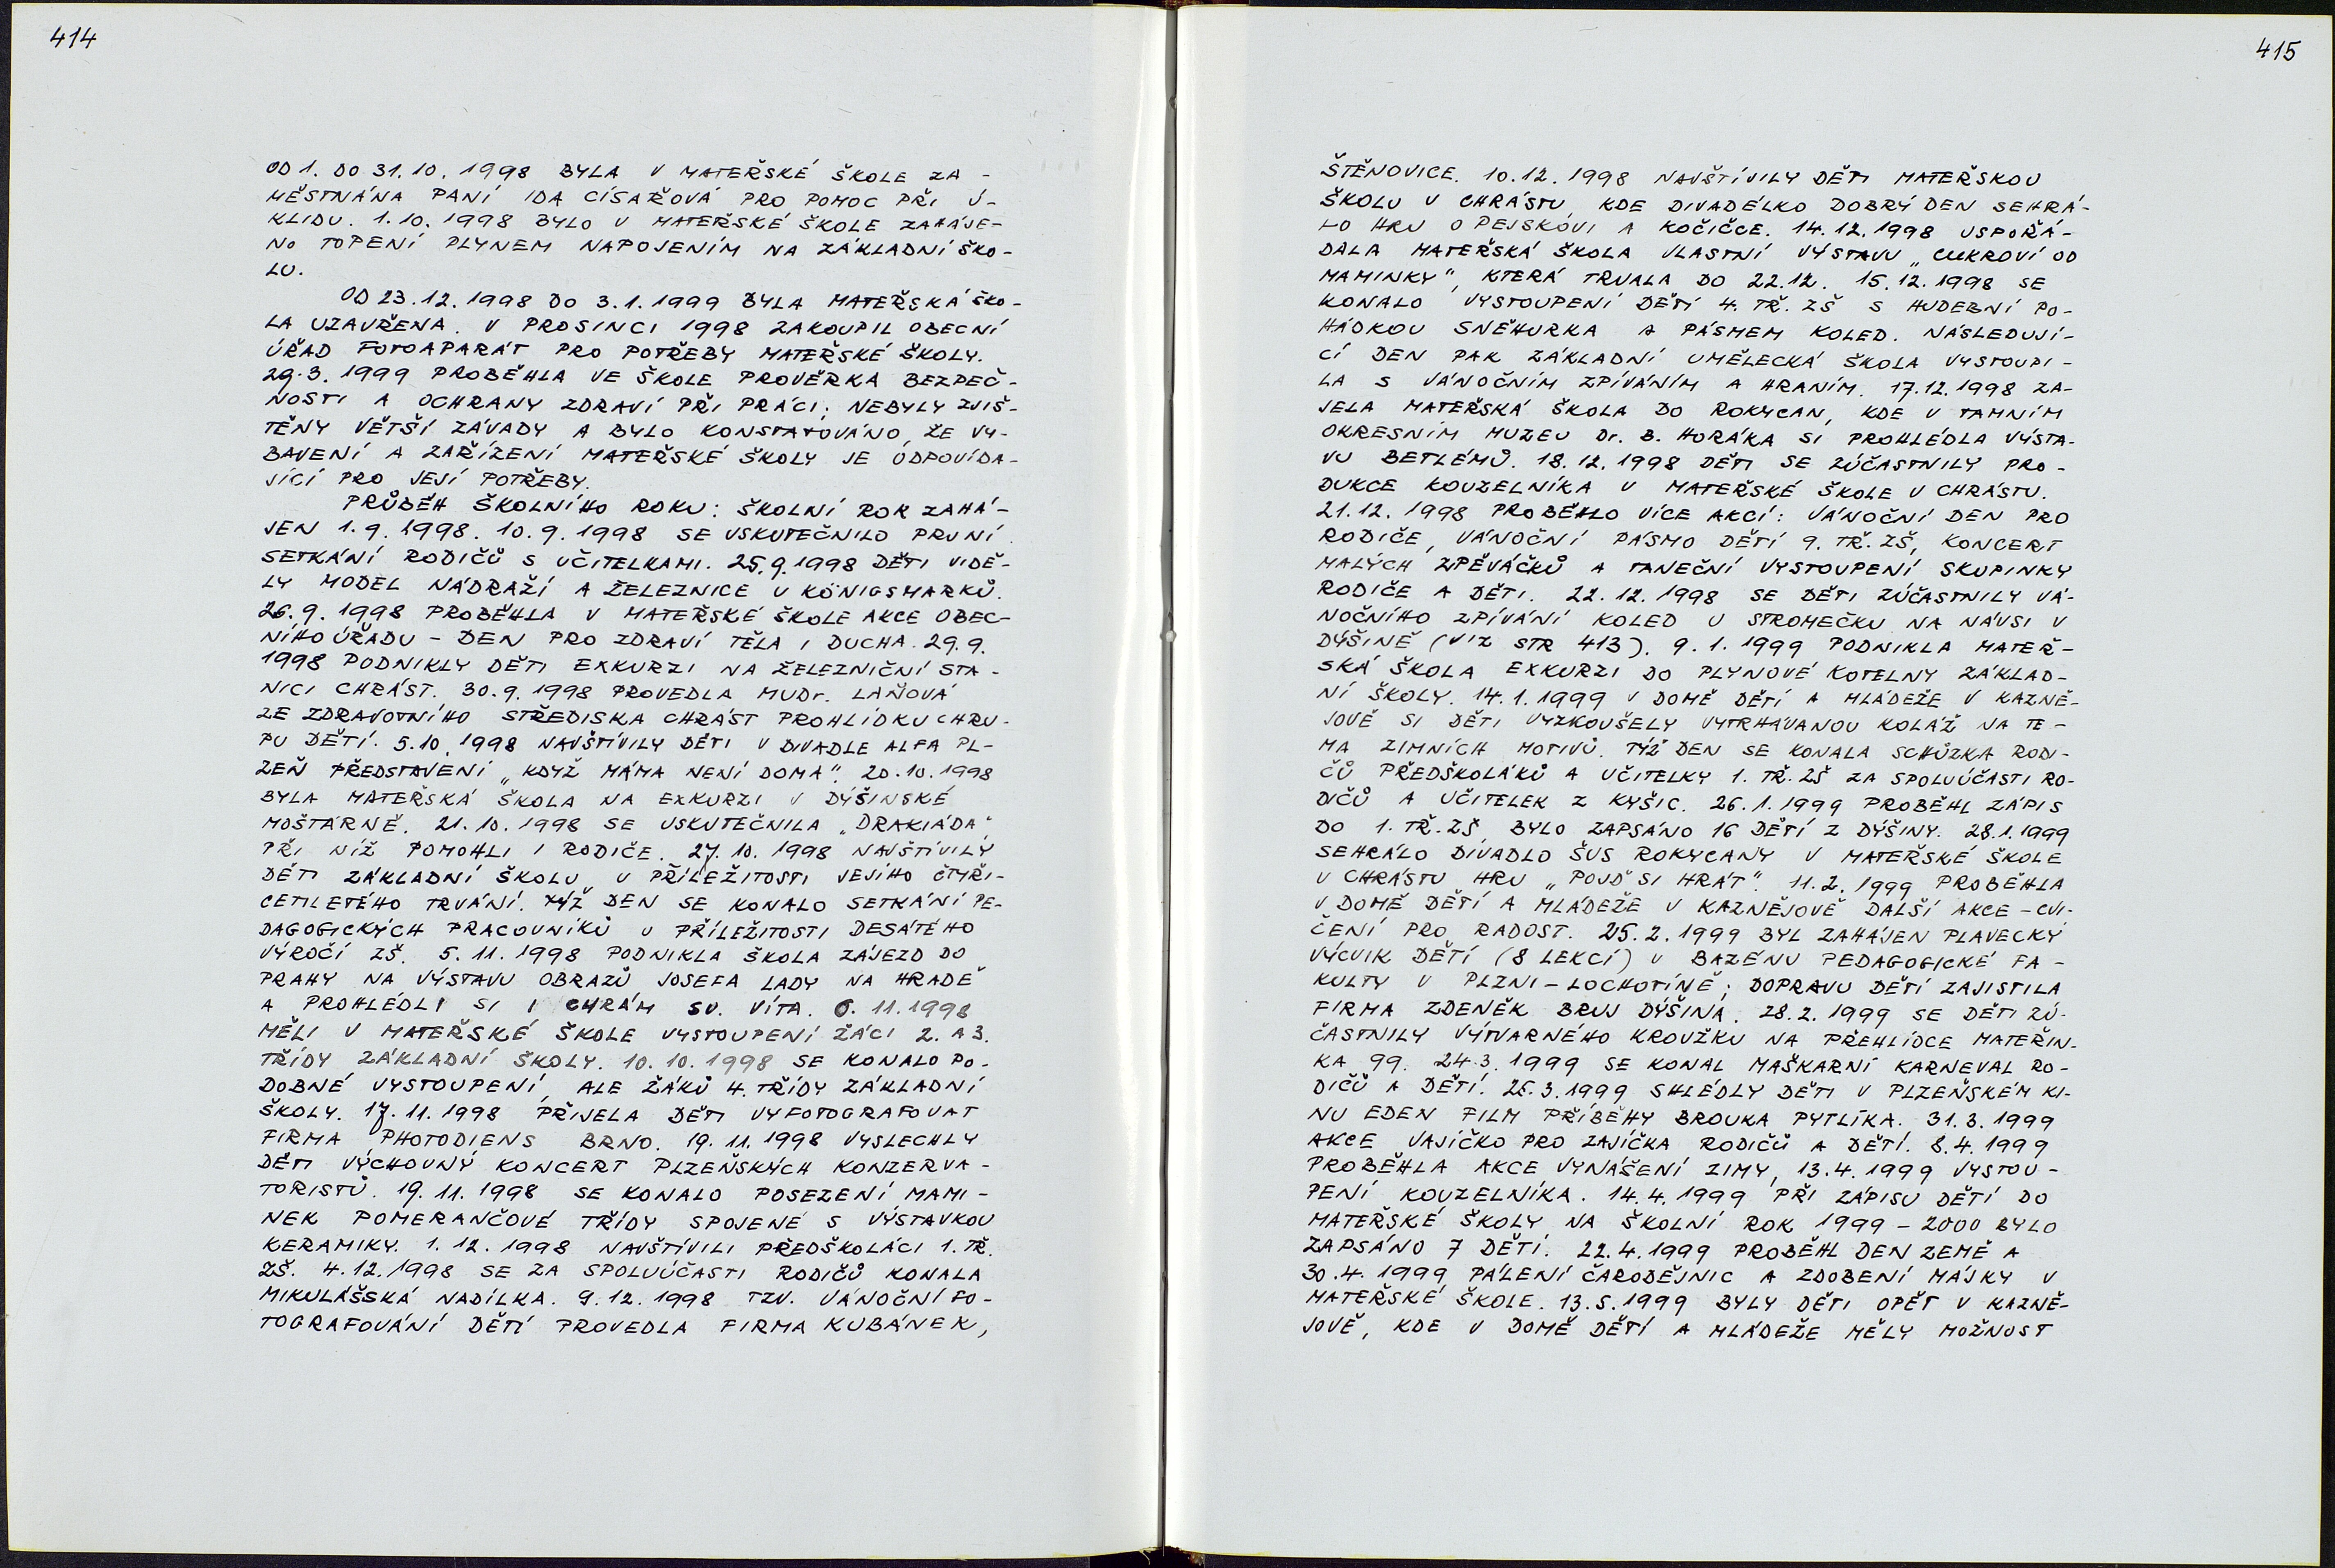 414
OD 1. DO 31.10. 1998 BYLA V MATEŘSKÉ ŠKOLE ZA-
MĚSTNÁNA PANÍ IDA CÍSAŘOVÁ PRO POMOC PŘI Ú-
KLIDU. 1.10. 1998 BYLO V MATEŘSKÉ ŠKOLE ZAHÁJE-
NO TOPENÍ PLYNEM NAPOJENÍM NA ZÁKLADNÍ ŠKO-
LU.
OD 23.12.1998 DO 3.1.1999 BYLA MATEŘSKÁ ŠKO-
LA UZAVŘENA. V PROSINCI 1998 ZAKOUPIL OBECNÍ
ÚŘAD FOTOAPARÁT PRO POTŘEBY MATEŘSKÉ ŠKOLY.
29.3. 1999 PROBĚHLA VE ŠKOLE PROVĚRKA BEZPEČ-
NOSTI A OCHRANY ZDRAVÍ PŘI PRÁCI; NEBYLY ZJIŠ-
TĚNY VĚTŠÍ ZÁVADY A BYLO KONSTATOVÁNO, ŽE VY-
BAVENÍ A ZAŘÍZENÍ MATEŘSKÉ ŠKOLY JE ODPOVÍDA-
JÍCÍ PRO JEJÍ POTŘEBY.
PRŮBĚH ŠKOLNÍHO ROKU: ŠKOLNÍ ROK ZAHÁ-
JEN 1.9.1998. 10.9.1998 SE USKUTEČNILO PRVNÍ
SETKÁNÍ RODIČŮ S UČITELKAMI. 25.9.1998 DĚTI VIDĚ-
LY MODEL NÁDRAŽÍ A ŽELEZNICE U KÖNIGSMARKŮ.
26.9. 1998 PROBĚHLA V MATEŘSKÉ ŠKOLE AKCE OBEC-
NÍHO ÚŘADU - DEN PRO ZDRAVÍ TĚLA I DUCHA. 29.9.
1998 PODNIKLY DĚTI EXKURZI NA ŽELEZNIČNÍ STA-
NICI CHRÁST. 30.9.1998 PROVEDLA MUDr. LAŇOVÁ
ZE ZDRAVOTNÍHO STŘEDISKA CHRÁST PROHLÍDKU CHRU-
PU DĚTÍ. 5.10.1998 NAVŠTÍVILY DĚTI V DIVADLE ALFA PL-
ZEŇ PŘEDSTAVENÍ „KDYŽ MÁMA NENÍ DOMA". 20.10.1998
BYLA MATEŘSKÁ ŠKOLA NA EXKURZI V DÝŠINSKÉ
MOŠTÁRNĚ. 21.10.1998 SE USKUTEČNILA „DRAKIÁDA",
PŘI NÍŽ POMOHLI I RODIČE. 27.10. 1998 NAVŠTÍVILY
DĚTI ZÁKLADNÍ ŠKOLU U PŘÍLEŽITOSTI JEJÍHO ČTYŘI-
CETILETÉHO TRVÁNÍ. TÝŽ DEN SE KONALO SETKÁNÍ PE-
DAGOGICKÝCH PRACOVNÍKŮ U PŘÍLEŽITOSTI DESÁTÉHO
VÝROČÍ ZŠ. 5.11.1998 PODNIKLA ŠKOLA ZÁJEZD DO
PRAHY NA VÝSTAVU OBRAZŮ JOSEFA LADY NA HRADĚ
A PROHLÉDLI SI I CHRÁM SV. VÍTA. 6.11.1998
MĚLI V MATEŘSKÉ ŠKOLE VYSTOUPENÍ ŽÁCI 2. A 3.
TŘÍDY ZÁKLADNÍ ŠKOLY. 10.10.1998 SE KONALO PO-
DOBNÉ VYSTOUPENÍ, ALE ŽÁKŮ 4. TŘÍDY ZÁKLADNÍ
ŠKOLY. 17.11.1998 PŘIJELA DĚTI VYFOTOGRAFOVAT
FIRMA PHOTODIENS BRNO. 19.11.1998 VYSLECHLY
DĚTI VÝCHOVNÝ KONCERT PLZEŇSKÝCH KONZERVA-
TORISTŮ. 19.11.1998 SE KONALO POSEZENÍ MAMI-
NEK POMERANČOVÉ TŘÍDY SPOJENÉ S VÝSTAVKOU
KERAMIKY. 1.12.1998 NAVŠTÍVILI PŘEDŠKOLÁCI 1. TŘ.
ZŠ. 4.12.1998 SE ZA SPOLUÚČASTI RODIČŮ KONALA
MIKULÁŠSKÁ NADÍLKA. 9.12.1998 TZV. VÁNOČNÍ FO-
TOGRAFOVÁNÍ DĚTÍ PROVEDLA FIRMA KUBÁNEK,
415
ŠTĚNOVICE. 10.12.1998 NAVŠTÍVILY DĚTI MATEŘSKOU
ŠKOLU V CHRÁSTU, KDE DIVADÉLKO DOBRÝ DEN SEHRÁ-
LO HRU O PEJSKOVI A KOČIČCE. 14.12.1998 USPOŘÁ-
DALA MATEŘSKÁ ŠKOLA VLASTNÍ VÝSTAVU „CUKROVÍ OD
MAMINKY", KTERÁ TRVALA DO 22.12. 15.12.1998 SE
KONALO VYSTOUPENÍ DĚTÍ 4. TŘ. ZŠ S HUDEBNÍ PO-
HÁDKOU SNĚHURKA A PÁSMEM KOLED. NÁSLEDUJÍ-
CÍ DEN PAK ZÁKLADNÍ UMĚLECKÁ ŠKOLA VYSTOUPI-
LA S VÁNOČNÍM ZPÍVÁNÍM A HRANÍM. 17.12.1998 ZA-
JELA MATEŘSKÁ ŠKOLA DO ROKYCAN, KDE V TAMNÍM
OKRESNÍM MUZEU Dr. B. HORÁKA SI PROHLÉDLA VÝSTA-
VU BETLÉMŮ. 18.12.1998 DĚTI SE ZÚČASTNILY PRO-
DUKCE KOUZELNÍKA V MATEŘSKÉ ŠKOLE V CHRÁSTU.
21.12.1998 PROBĚHLO VÍCE AKCÍ: VÁNOČNÍ DEN PRO
RODIČE, VÁNOČNÍ PÁSMO DĚTÍ 9. TŘ. ZŠ, KONCERT
MALÝCH ZPĚVÁČKŮ A TANEČNÍ VYSTOUPENÍ SKUPINKY
RODIČE A DĚTI. 22.12.1998 SE DĚTI ZÚČASTNILY VÁ-
NOČNÍHO ZPÍVÁNÍ KOLED U STROMEČKU NA NÁVSI V
DÝŠINĚ (VIZ STR 413). 9.1.1999 PODNIKLA MATEŘ-
SKÁ ŠKOLA EXKURZI DO PLYNOVÉ KOTELNY ZÁKLAD-
NÍ ŠKOLY. 14.1.1999 V DOMĚ DĚTÍ A MLÁDEŽE V KAZNĚ-
JOVĚ SI DĚTI VYZKOUŠELY VYTRHÁVANOU KOLÁŽ NA TÉ-
MA ZIMNÍCH MOTIVŮ. TÝŽ DEN SE KONALA SCHŮZKA RODI-
ČŮ PŘEDŠKOLÁKŮ A UČITELKY 1. TŘ. ZŠ ZA SPOLUÚČASTI RO-
DIČŮ A UČITELEK Z KYŠIC. 26.1.1999 PROBĚHL ZÁPIS
DO 1. TŘ. ZŠ, BYLO ZAPSÁNO 16 DĚTÍ Z DÝŠINY. 28.1.1999
SEHRÁLO DIVADLO ŠUS ROKYCANY V MATEŘSKÉ ŠKOLE
V CHRÁSTU HRU „POJĎ SI HRÁT". 11.2.1999 PROBĚHLA
V DOMĚ DĚTÍ A MLÁDEŽE V KAZNĚJOVĚ DALŠÍ AKCE - CVI-
ČENÍ PRO RADOST. 25.2.1999 BYL ZAHÁJEN PLAVECKÝ
VÝCVIK DĚTÍ (8 LEKCÍ) V BAZÉNU PEDAGOGICKÉ FA-
KULTY V PLZNI - LOCHOTÍNĚ; DOPRAVU DĚTÍ ZAJISTILA
FIRMA ZDENĚK BRUJ DÝŠINA. 28.2.1999 SE DĚTI ZÚ-
ČASTNILY VÝTVARNÉHO KROUŽKU NA PŘEHLÍDCE MATEŘIN-
KA 99. 24.3.1999 SE KONAL MAŠKARNÍ KARNEVAL RO-
DIČŮ A DĚTÍ. 25.3.1999 SHLÉDLY DĚTI V PLZEŇSKÉM KI-
NU EDEN FILM PŘÍBĚHY BROUKA PYTLÍKA. 31.3.1999
AKCE VAJÍČKO PRO ZAJÍČKA RODIČŮ A DĚTÍ. 8.4.1999
PROBĚHLA AKCE VYNÁŠENÍ ZIMY, 13.4.1999 VYSTOU-
PENÍ KOUZELNÍKA. 14.4.1999 PŘI ZÁPISU DĚTÍ DO
MATEŘSKÉ ŠKOLY NA ŠKOLNÍ ROK 1999 - 2000 BYLO
ZAPSÁNO 7 DĚTÍ. 22.4.1999 PROBĚHL DEN ZEMĚ A
30.4.1999 PÁLENÍ ČARODĚJNIC A ZDOBENÍ MÁJKY V
MATEŘSKÉ ŠKOLE. 13.5.1999 BYLY DĚTI OPĚT V KAZNĚ-
JOVĚ, KDE V DOMĚ DĚTÍ A MLÁDEŽE MĚLY MOŽNOST